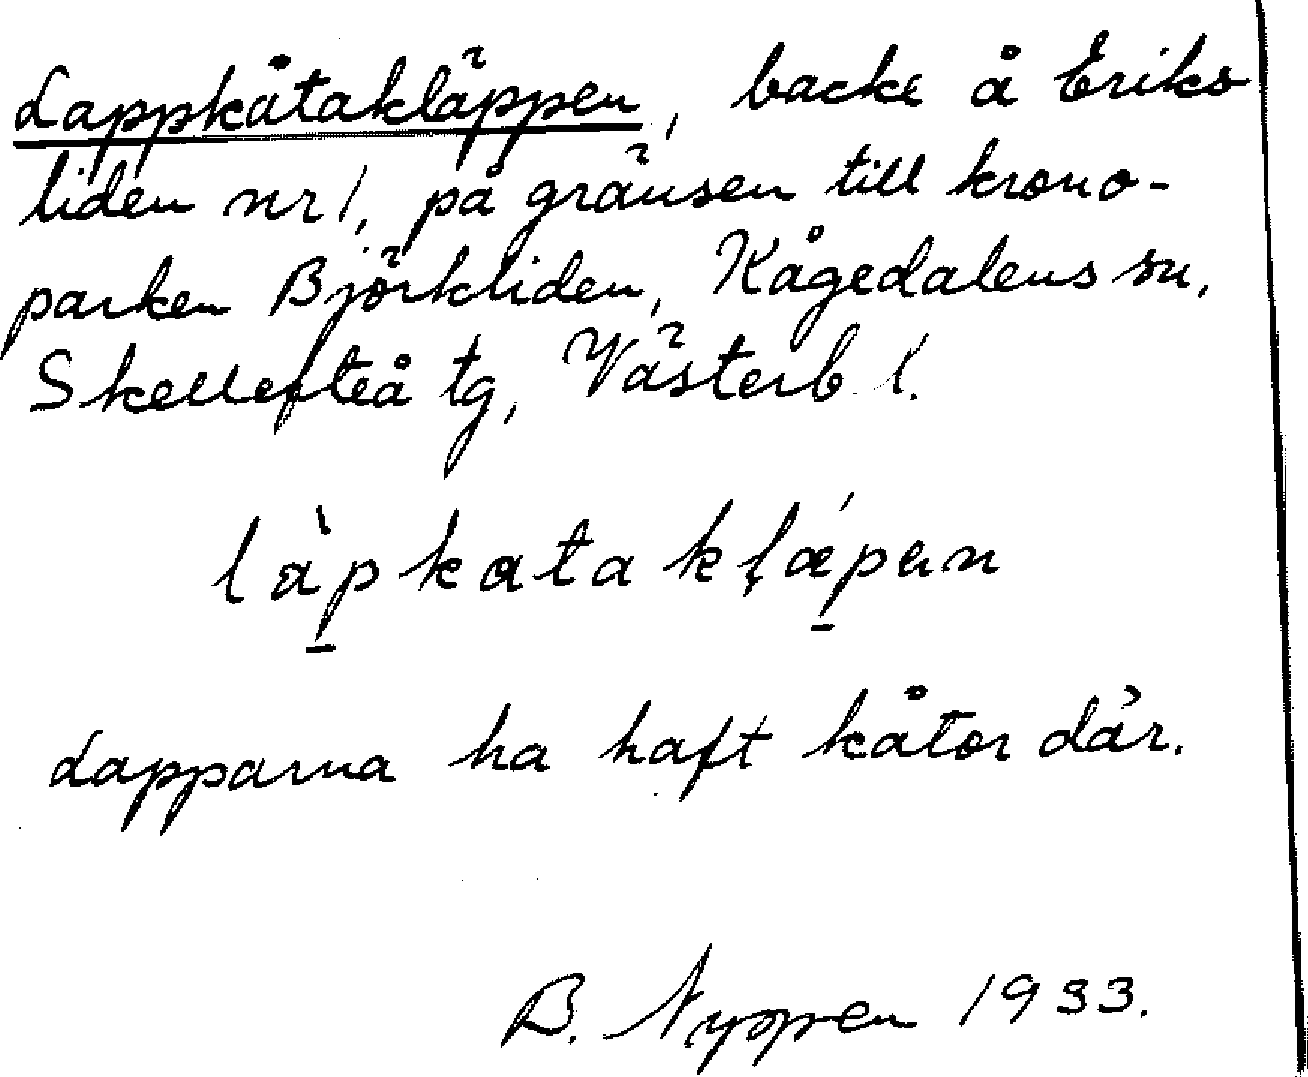 Lappkåtakläppen, backe å Eriks
liden nr 1, på gränsen till krono-
parken Björkliden, Kågedalens sn,
Skellefteå tg, Västerb l.
làpkatakļǽpen
Lapparna ha haft kåtor där.
B. Nyppen 1933.